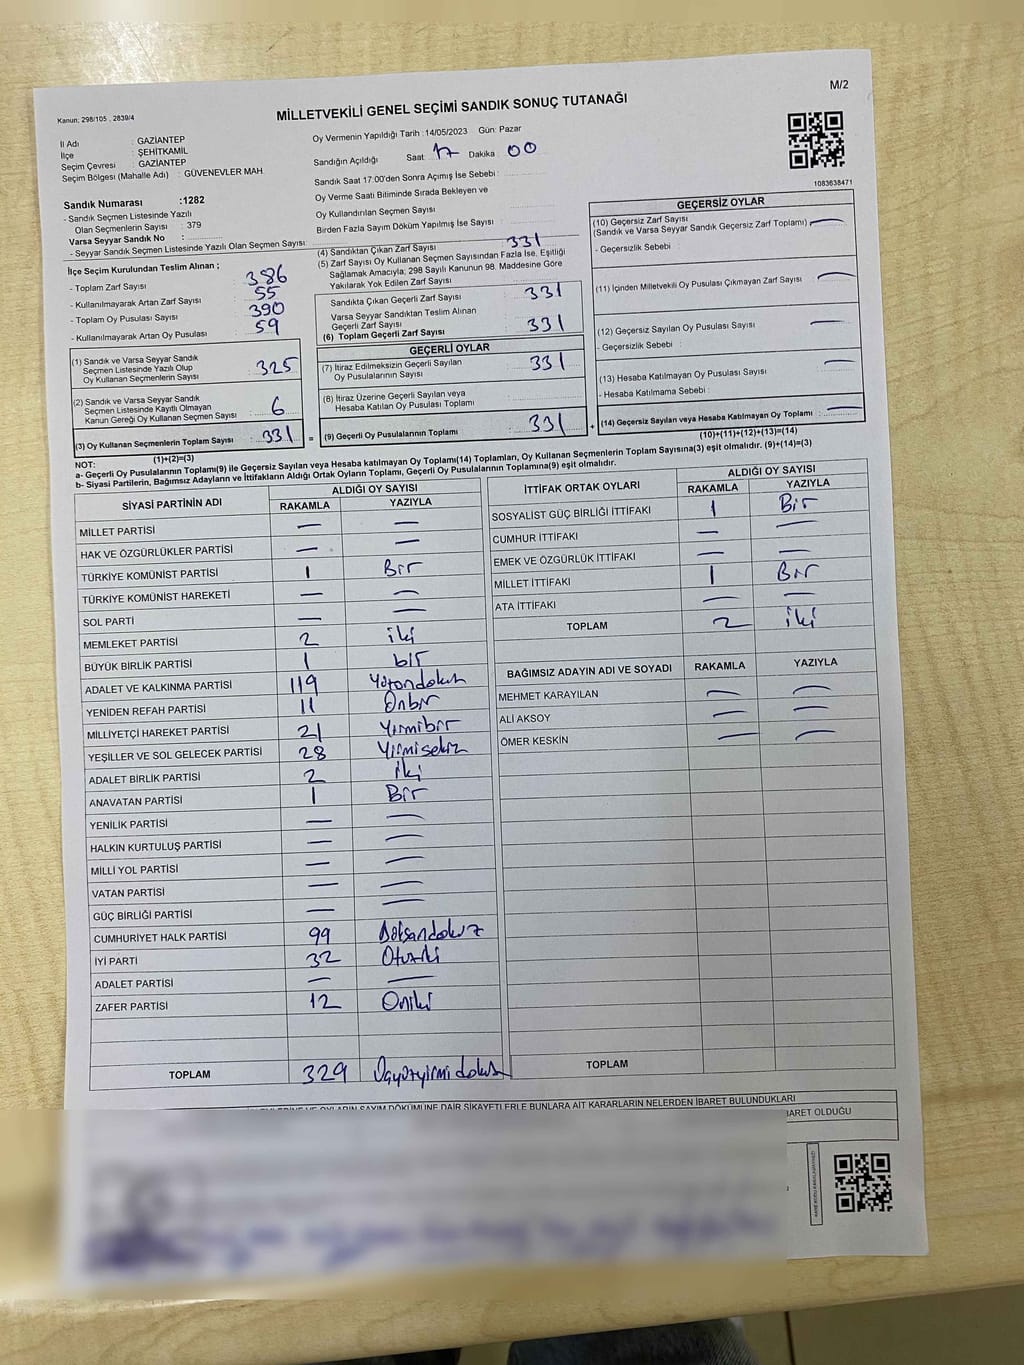 M/2
MİLLETVEKİLİ GENEL SEÇİMİ SANDIK SONUÇ TUTANAĞI
Kanun; 298/105 , 2839/4
İl Adı : GAZİANTEP
İlçe : ŞEHİTKAMİL
Seçim Çevresi : GAZİANTEP
Seçim Bölgesi (Mahalle Adı) : GÜVENEVLER MAH.
Oy Vermenin Yapıldığı Tarih :14/05/2023 Gün: Pazar
Sandığın Açıldığı Saat : 17 Dakika : 00
Sandık Saat 17:00'den Sonra Açımış İse Sebebi :
Oy Verme Saati Bitiminde Sırada Bekleyen ve
Oy Kullandırılan Seçmen Sayısı :
Birden Fazla Sayım Döküm Yapılmış İse Sayısı :
1083638471
Sandık Numarası :1282
- Sandık Seçmen Listesinde Yazılı
Olan Seçmenlerin Sayısı : 379
Varsa Seyyar Sandık No :
- Seyyar Sandık Seçmen Listesinde Yazılı Olan Seçmen Sayısı :
İlçe Seçim Kurulundan Teslim Alınan ;
- Toplam Zarf Sayısı : 386
- Kullanılmayarak Artan Zarf Sayısı : 55
- Toplam Oy Pusulası Sayısı : 390
- Kullanılmayarak Artan Oy Pusulası : 59
(1) Sandık ve Varsa Seyyar Sandık
Seçmen Listesinde Yazılı Olup
Oy Kullanan Seçmenlerin Sayısı : 325
(2) Sandık ve Varsa Seyyar Sandık
Seçmen Listesinde Kayıtlı Olmayan
Kanun Gereği Oy Kullanan Seçmen Sayısı : 6
(3) Oy Kullanan Seçmenlerin Toplam Sayısı : 331
(1)+(2)=(3)
(4) Sandıktan Çıkan Zarf Sayısı : 331
(5) Zarf Sayısı Oy Kullanan Seçmen Sayısından Fazla İse, Eşitliği
Sağlamak Amacıyla; 298 Sayılı Kanunun 98. Maddesine Göre
Yakılarak Yok Edilen Zarf Sayısı :
Sandıkta Çıkan Geçerli Zarf Sayısı : 331
Varsa Seyyar Sandıktan Teslim Alınan
Geçerli Zarf Sayısı :
(6) Toplam Geçerli Zarf Sayısı : 331
GEÇERLİ OYLAR
(7) İtiraz Edilmeksizin Geçerli Sayılan
Oy Pusulalarının Sayısı : 331
(8) İtiraz Üzerine Geçerli Sayılan veya
Hesaba Katılan Oy Pusulası Toplamı :
= (9) Geçerli Oy Pusulalarının Toplamı : 331 +
GEÇERSİZ OYLAR
(10) Geçersiz Zarf Sayısı
(Sandık ve Varsa Seyyar Sandık Geçersiz Zarf Toplamı) : —
- Geçersizlik Sebebi :
(11) İçinden Milletvekili Oy Pusulası Çıkmayan Zarf Sayısı : —
(12) Geçersiz Sayılan Oy Pusulası Sayısı : —
- Geçersizlik Sebebi :
(13) Hesaba Katılmayan Oy Pusulası Sayısı : —
- Hesaba Katılmama Sebebi :
(14) Geçersiz Sayılan veya Hesaba Katılmayan Oy Toplamı : —
(10)+(11)+(12)+(13)=(14)
NOT:
a- Geçerli Oy Pusulalarının Toplamı(9) ile Geçersiz Sayılan veya Hesaba katılmayan Oy Toplamı(14) Toplamları, Oy Kullanan Seçmenlerin Toplam Sayısına(3) eşit olmalıdır. (9)+(14)=(3)
b- Siyasi Partilerin, Bağımsız Adayların ve İttifakların Aldığı Ortak Oyların Toplamı, Geçerli Oy Pusulalarının Toplamına(9) eşit olmalıdır.
SİYASİ PARTİNİN ADI ALDIĞI OY SAYISI
RAKAMLA YAZIYLA
MİLLET PARTİSİ — —
HAK VE ÖZGÜRLÜKLER PARTİSİ — —
TÜRKİYE KOMÜNİST PARTİSİ 1 Bir
TÜRKİYE KOMÜNİST HAREKETİ — —
SOL PARTİ — —
MEMLEKET PARTİSİ 2 iki
BÜYÜK BİRLİK PARTİSİ 1 bir
ADALET VE KALKINMA PARTİSİ 119 Yüzondokuz
YENİDEN REFAH PARTİSİ 11 Onbir
MİLLİYETÇİ HAREKET PARTİSİ 21 Yirmibir
YEŞİLLER VE SOL GELECEK PARTİSİ 28 Yirmisekiz
ADALET BİRLİK PARTİSİ 2 iki
ANAVATAN PARTİSİ 1 Bir
YENİLİK PARTİSİ — —
HALKIN KURTULUŞ PARTİSİ — —
MİLLİ YOL PARTİSİ — —
VATAN PARTİSİ — —
GÜÇ BİRLİĞİ PARTİSİ — —
CUMHURİYET HALK PARTİSİ 99 Doksandokuz
İYİ PARTİ 32 Otuziki
ADALET PARTİSİ — —
ZAFER PARTİSİ 12 Oniki
TOPLAM 329 Üçyüzyirmidokuz
İTTİFAK ORTAK OYLARI ALDIĞI OY SAYISI
RAKAMLA YAZIYLA
SOSYALİST GÜÇ BİRLİĞİ İTTİFAKI 1 Bir
CUMHUR İTTİFAKI — —
EMEK VE ÖZGÜRLÜK İTTİFAKI — —
MİLLET İTTİFAKI 1 Bir
ATA İTTİFAKI — —
TOPLAM 2 iki
BAĞIMSIZ ADAYIN ADI VE SOYADI RAKAMLA YAZIYLA
MEHMET KARAYILAN — —
ALİ AKSOY — —
ÖMER KESKİN — —
TOPLAM
OYLARIN SAYIM DÖKÜMÜNE DAİR ŞİKAYETLERLE BUNLARA AİT KARARLARIN NELERDEN İBARET BULUNDUKLARI
İBARET OLDUĞU